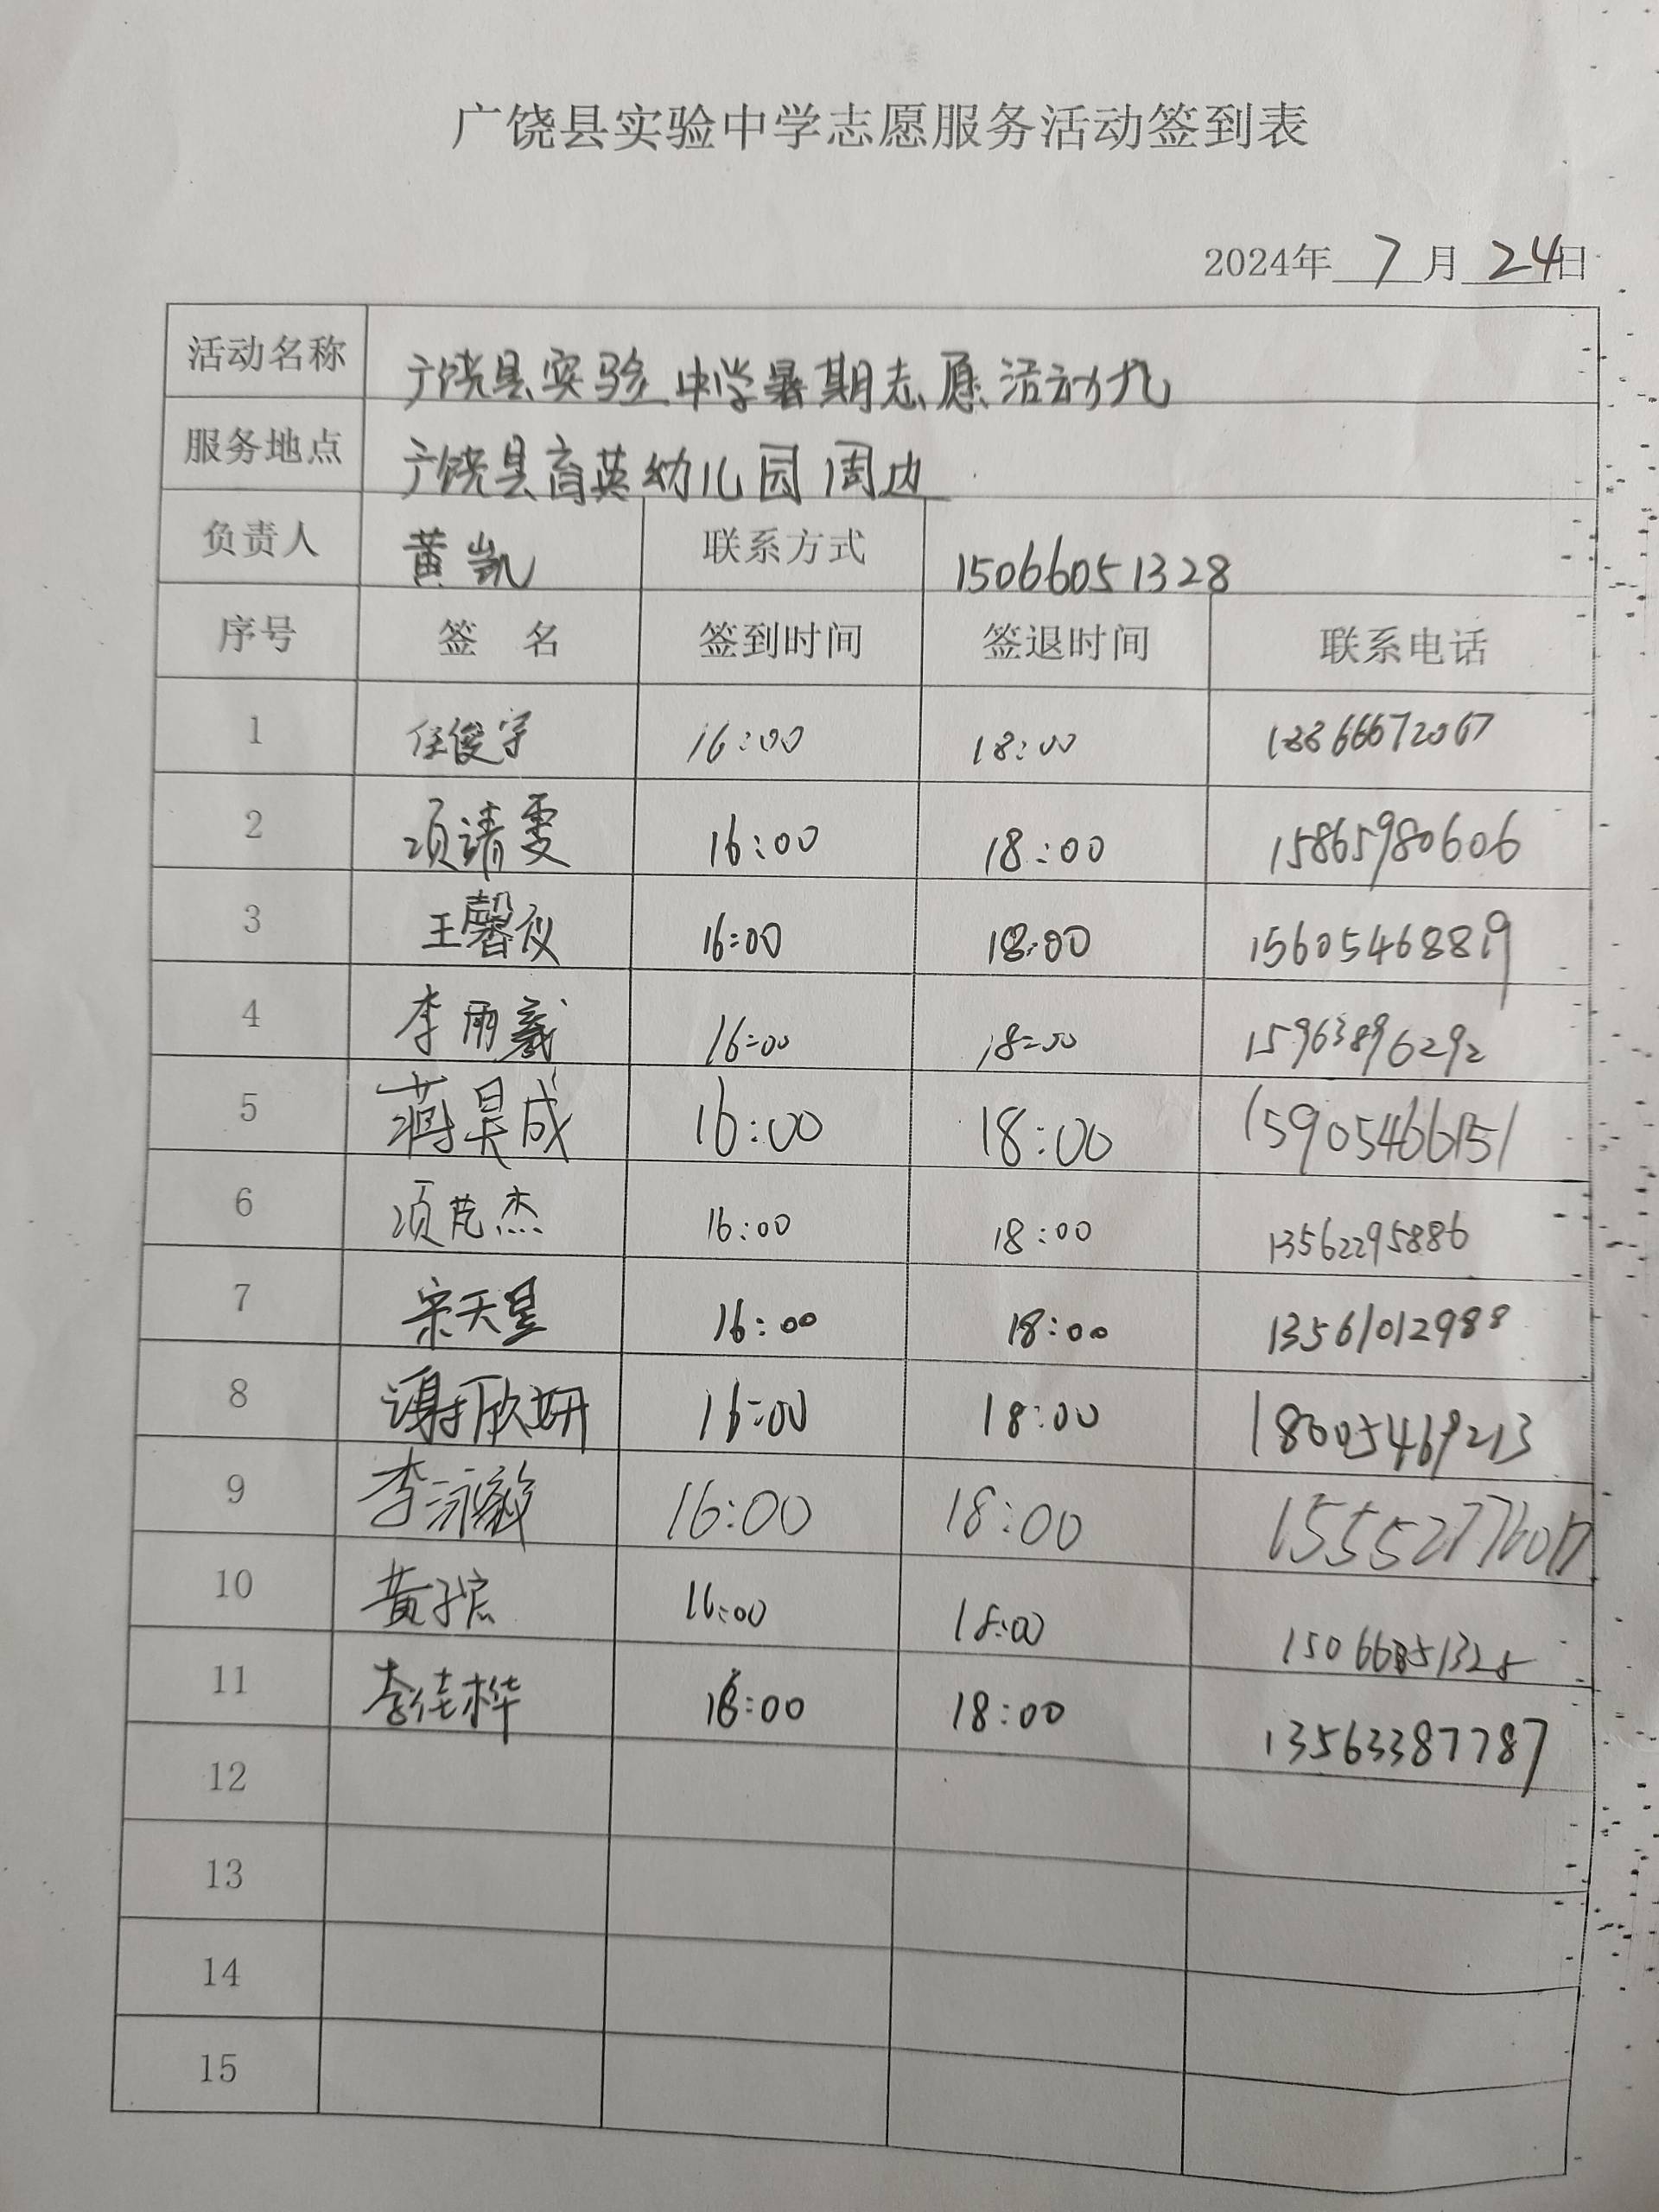 广饶县实验中学志愿服务活动签到表
2024年 7 月 24日
活动名称 广饶县实验中学暑期志愿活动九
服务地点 广饶县育英幼儿园周边
负责人 黄凯 联系方式 15066051328
序号 签 名 签到时间 签退时间 联系电话
1 任俊宇 16:00 18:00
2 项靖雯 16:00 18:00 15865980606
3 王馨仪 16:00 18:00 15605468819
4 李雨羲 16:00 18:00 15963896292
5 蒋昊成 16:00 18:00 15905466151
6 项芃杰 16:00 18:00 13562295886
7 宋天昱 16:00 18:00 13561012988
8 谢欣妍 16:00 18:00 18005469213
9 李泳毅 16:00 18:00
10 黄子宸 16:00 18:00 15066051328
11 李佳桦 16:00 18:00 13563387787
12
13
14
15